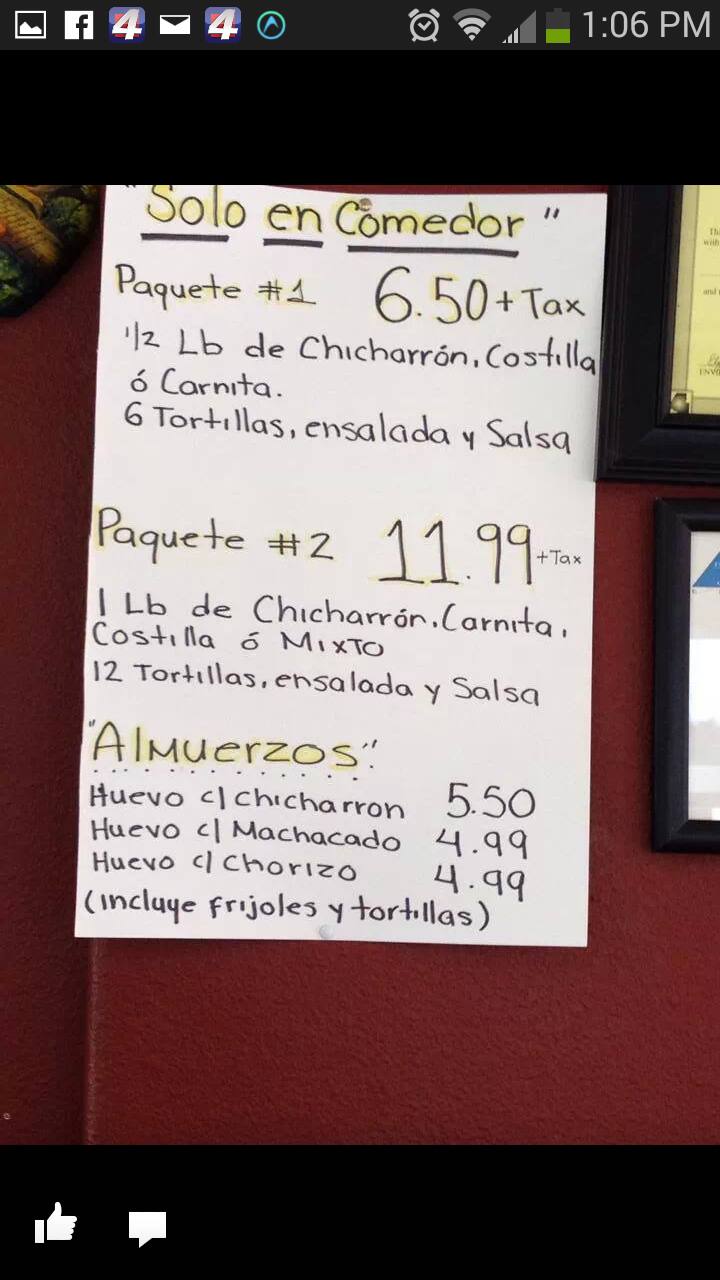 1:06 PM
"Solo en Comedor"
Paquete #1 6.50 + Tax
1/2 Lb de Chicharrón, Costilla
ó Carnita.
6 Tortillas, ensalada y Salsa
Paquete #2 11.99 + Tax
1 Lb de Chicharrón, Carnita,
Costilla ó Mixto
12 Tortillas, ensalada y Salsa
"Almuerzos"
Huevo c/ chicharron 5.50
Huevo c/ Machacado 4.99
Huevo c/ Chorizo 4.99
(incluye frijoles y tortillas)